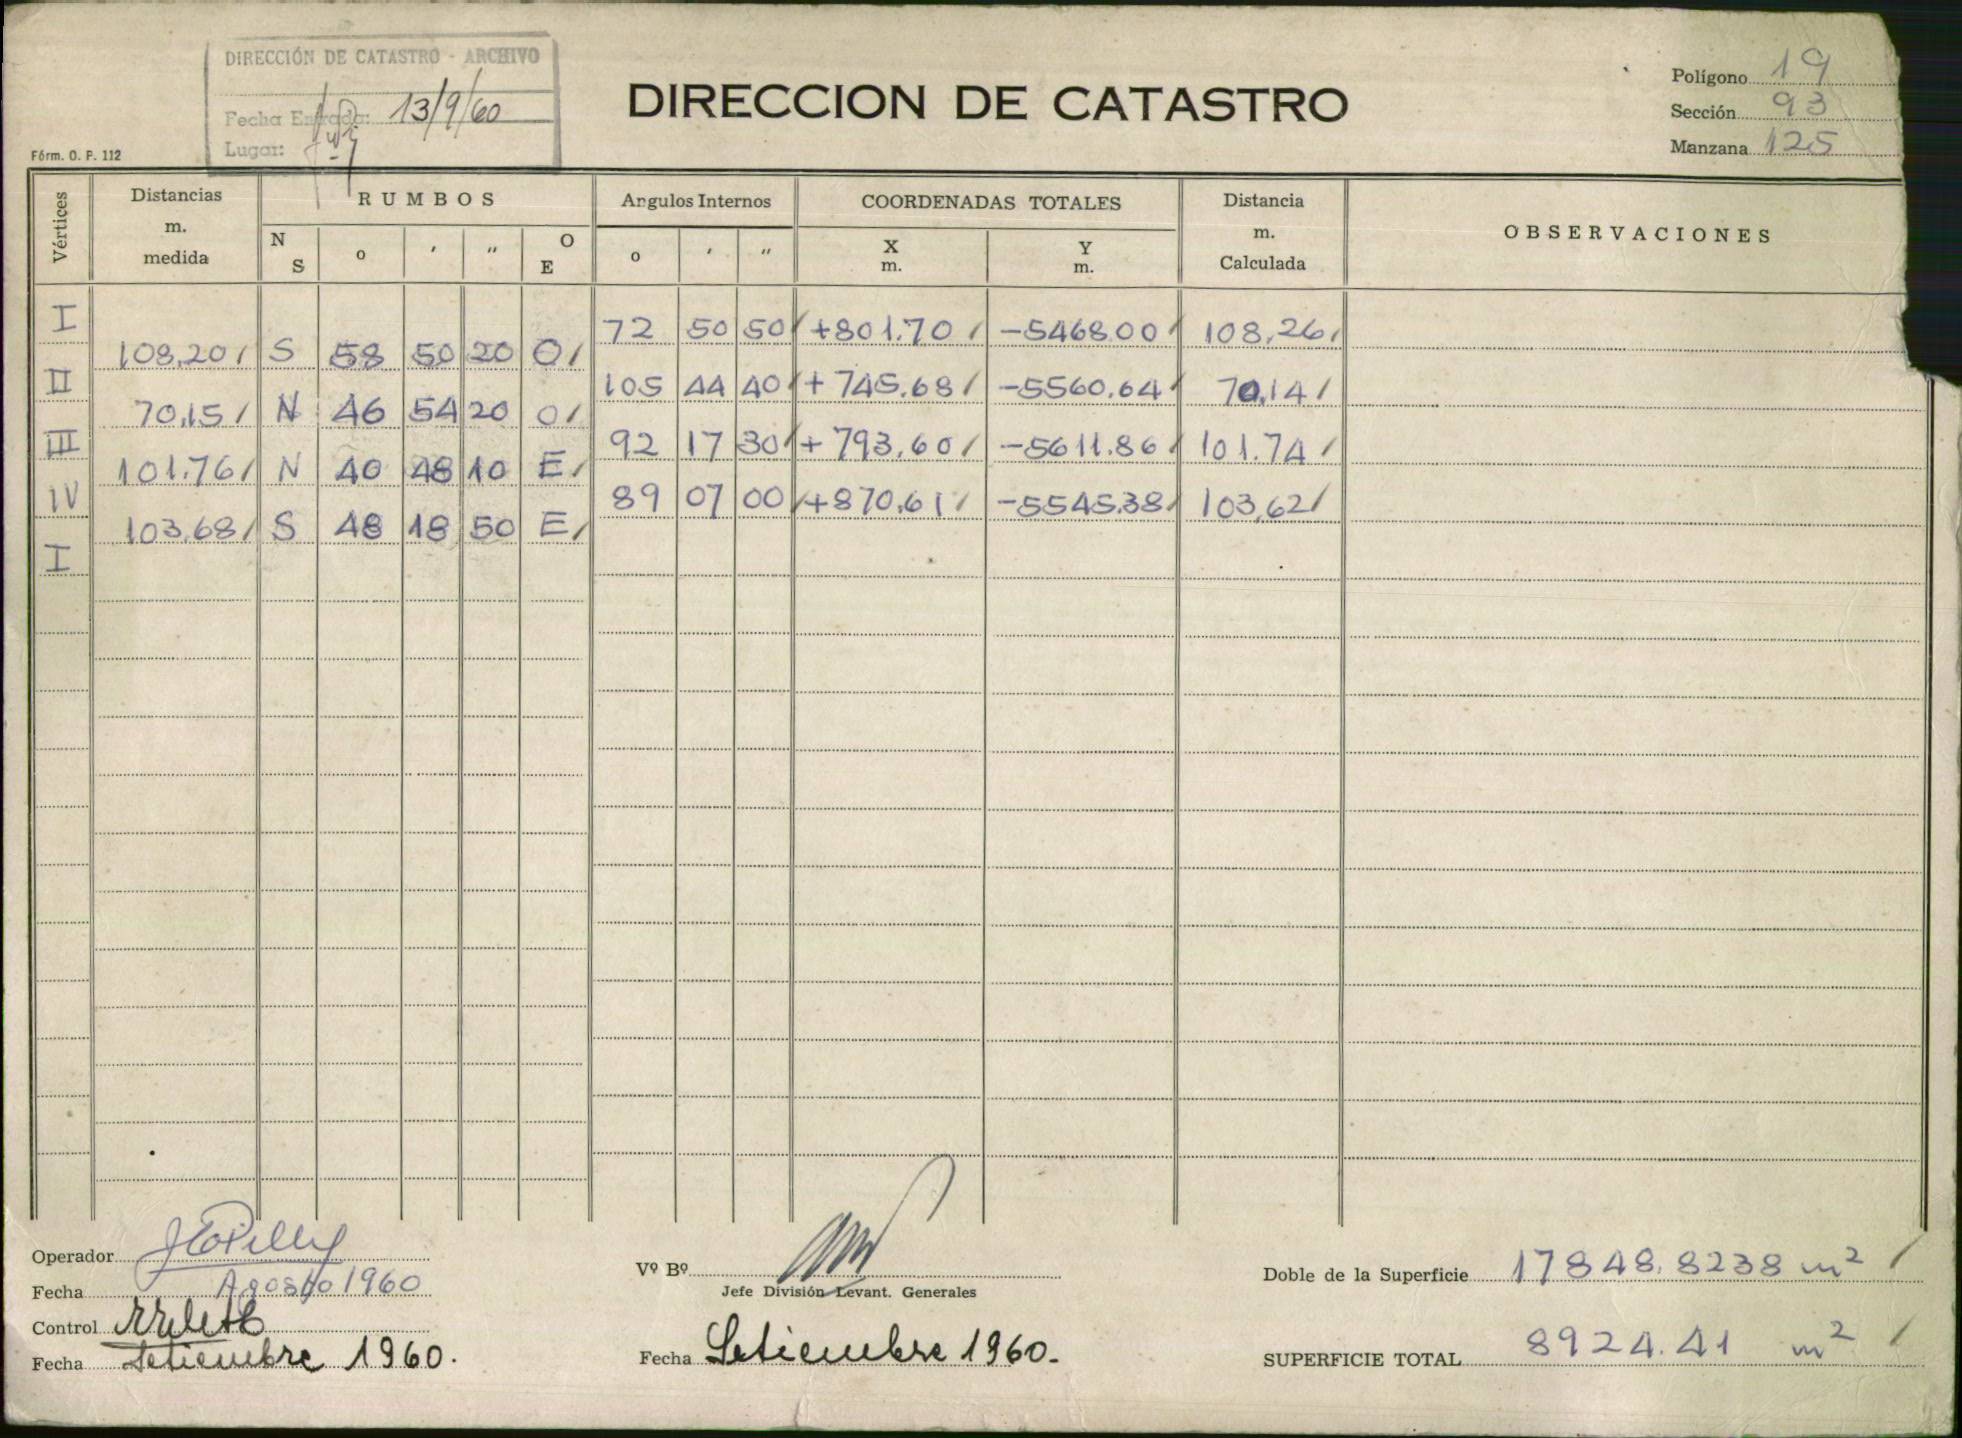 DIRECCIÓN DE CATASTRO - ARCHIVO
Fecha Entrada: 13/9/60
Lugar:
Fórm. O. P. 112
DIRECCION DE CATASTRO
Polígono 19
Sección 93
Manzana 125
Vértices
Distancias m. medida
RUMBOS
N S o ′ ″ O E
Angulos Internos
o ′ ″
COORDENADAS TOTALES
X m. Y m.
Distancia m. Calculada
OBSERVACIONES
I 72 50 50 +801.70 -5468.00 108,26
108,20 S 58 50 20 O
II 105 44 40 +745.68 -5560.64 70,14
70,15 N 46 54 20 O
III 92 17 30 +793.60 -5611.86 101.74
101.76 N 40 48 10 E
IV 89 07 00 +870.61 -5545.38 103,62
103,68 S 48 18 50 E
I
Operador
Fecha Agosto 1960
Control
Fecha Setiembre 1960.
Vº Bº
Jefe División Levant. Generales
Fecha Setiembre 1960.
Doble de la Superficie 17848.8238 m²
SUPERFICIE TOTAL 8924.41 m²